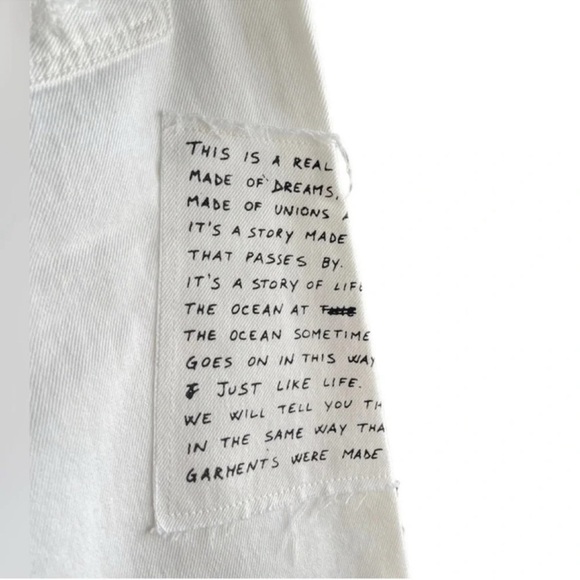 THIS IS A REAL
MADE OF DREAMS,
MADE OF UNIONS
IT'S A STORY MADE
THAT PASSES BY.
IT'S A STORY OF LIFE
THE OCEAN AT
THE OCEAN SOMETIME
GOES ON IN THIS WAY
JUST LIKE LIFE.
WE WILL TELL YOU TH
IN THE SAME WAY THA
GARMENTS WERE MADE